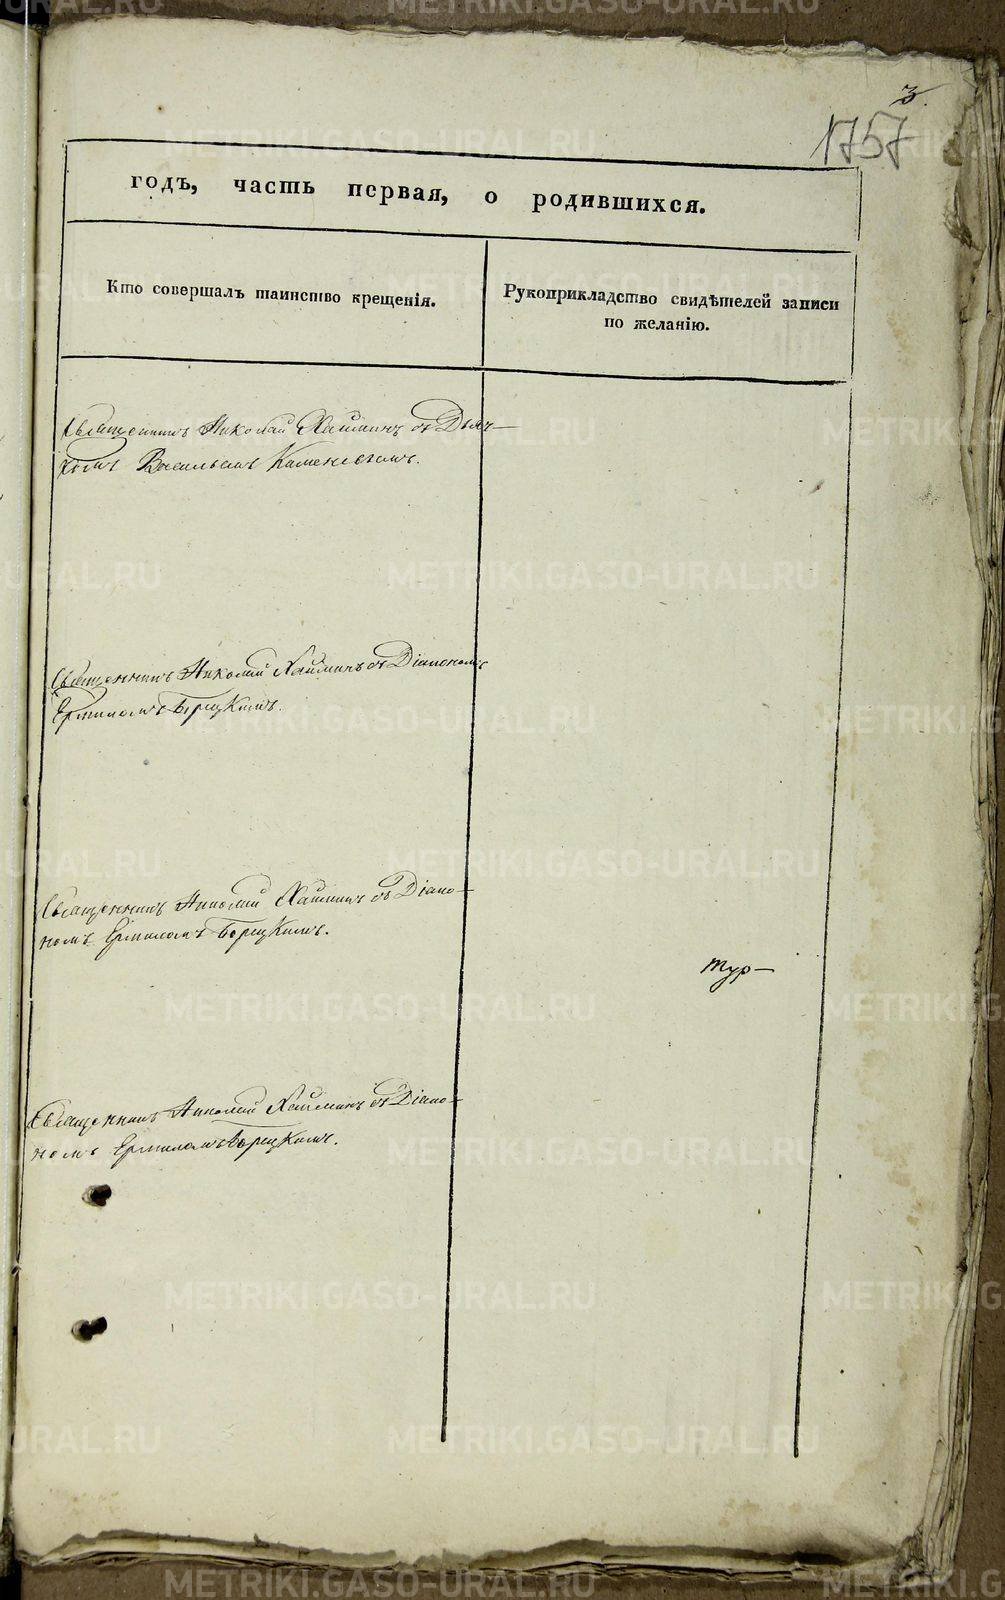 3.
1757
годъ, часть первая, о родившихся.
Кто совершалъ таинство крещенія.
Рукоприкладство свидѣтелей записи
по желанію.
Священникъ Николай Хаймин съ Дьяч-
комъ Васильемъ Каменскимъ.
Священникъ Николай Хайминъ съ Діакономъ
Ермиломъ Борецкимъ.
Священникъ Николай Хайминъ съ Діако-
номъ Ермиломъ Борецкимъ.
тур-
Священникъ Николай Хайминъ съ Діако-
номъ Ермиломъ Борецкимъ.
METRIKI.GASO-URAL.RU